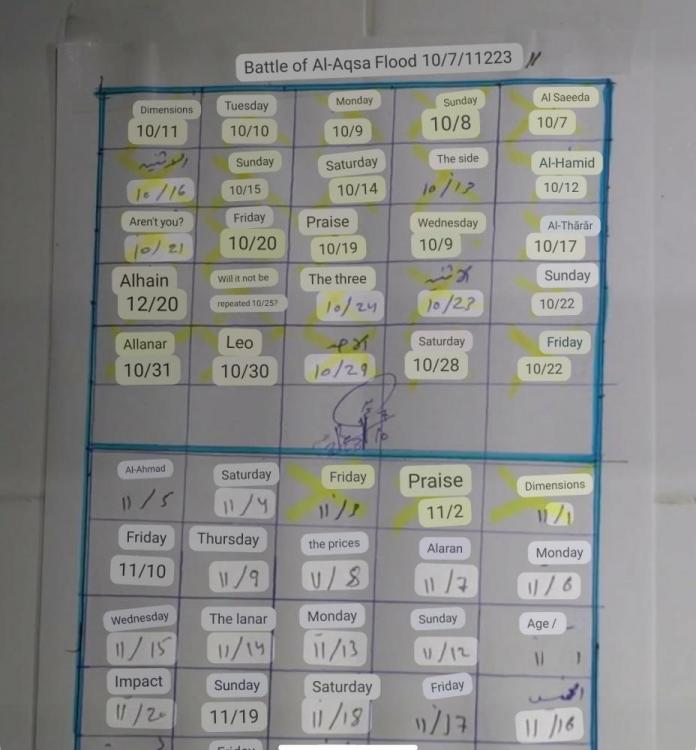 Battle of Al-Aqsa Flood 10/7/11223
Dimensions Tuesday Monday Sunday Al Saeeda
10/11 10/10 10/9 10/8 10/7
Sunday Saturday The side Al-Hamid
10/16 10/15 10/14 10/13 10/12
Aren't you? Friday Praise Wednesday Al-Thārār
10/21 10/20 10/19 10/9 10/17
Alhain Will it not be The three Sunday
12/20 repeated 10/25? 10/24 10/23 10/22
Allanar Leo Saturday Friday
10/31 10/30 10/29 10/28 10/22
Al-Ahmad Saturday Friday Praise Dimensions
11/5 11/4 11/3 11/2 11/1
Friday Thursday the prices Alaran Monday
11/10 11/9 11/8 11/7 11/6
Wednesday The lanar Monday Sunday Age /
11/15 11/14 11/13 11/12 11
Impact Sunday Saturday Friday الخميس
11/20 11/19 11/18 11/17 11/16